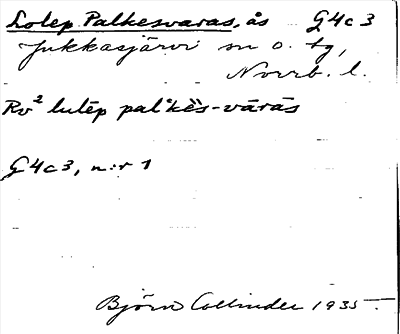 Lolep Palkesvaras, ås G4c3
Jukkasjärvi sn o. tg,
Norrb. l.
Rv² lulēp palˈkēs-vārās
G4c3, n:r 1
Björn Collinder 1935